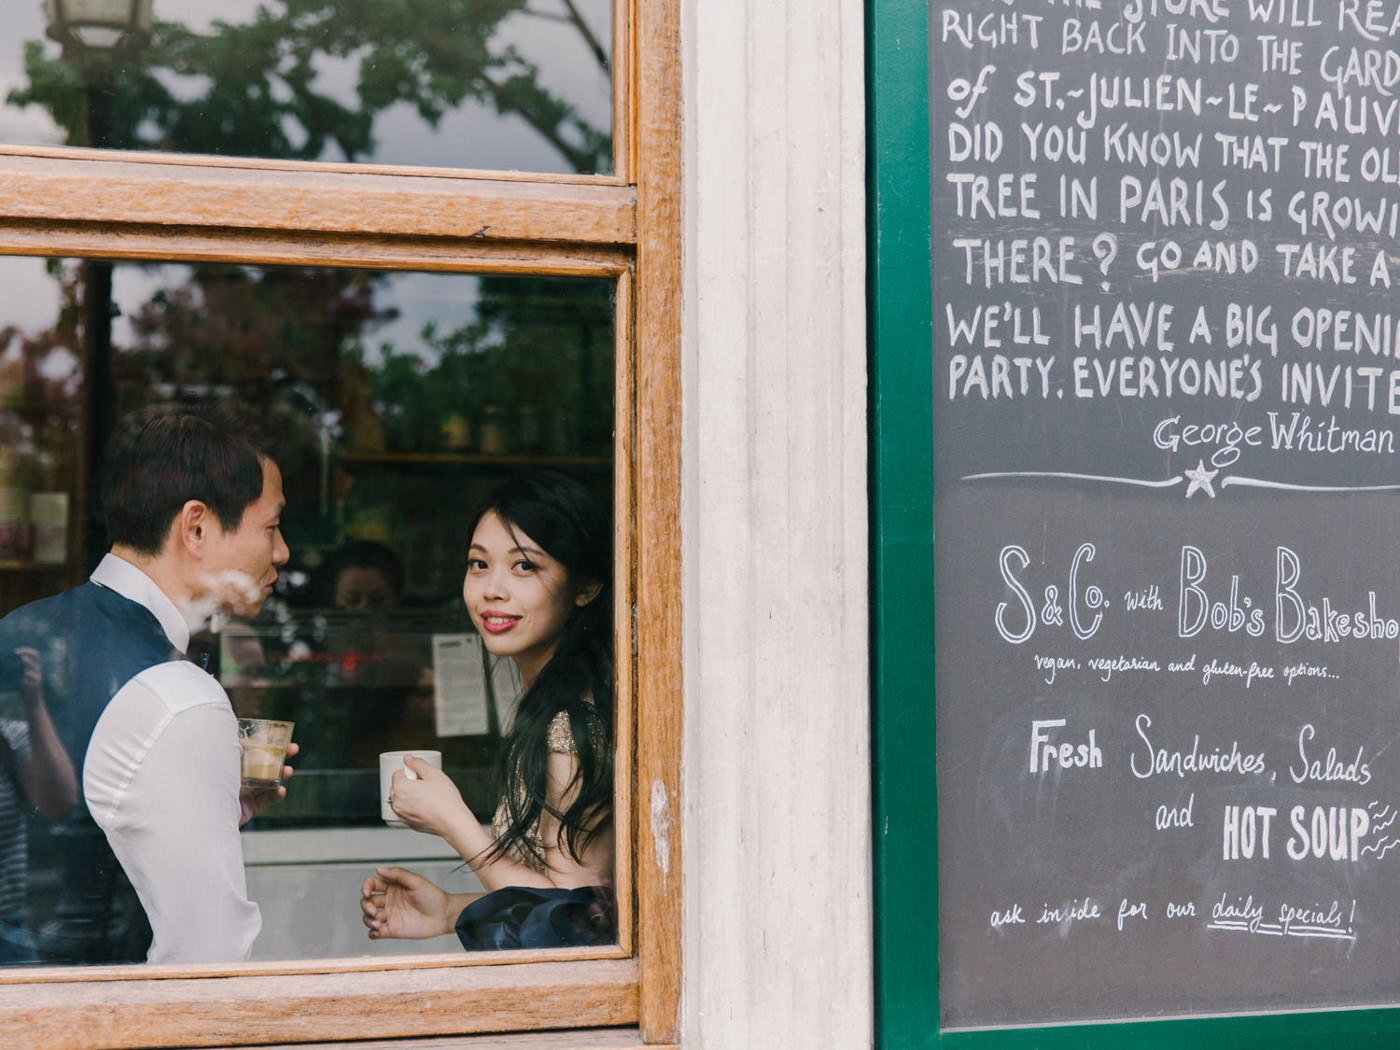 THE STORE WILL RE
RIGHT BACK INTO THE GARD
of ST.~JULIEN~LE~PAUV
DID YOU KNOW THAT THE OL
TREE IN PARIS IS GROWI
THERE? GO AND TAKE A
WE'LL HAVE A BIG OPENI
PARTY. EVERYONE'S INVITE
George Whitman
S & Co. with Bob's Bakesho
vegan, vegetarian and gluten-free options...
Fresh Sandwiches, Salads
and HOT SOUP
ask inside for our daily specials!